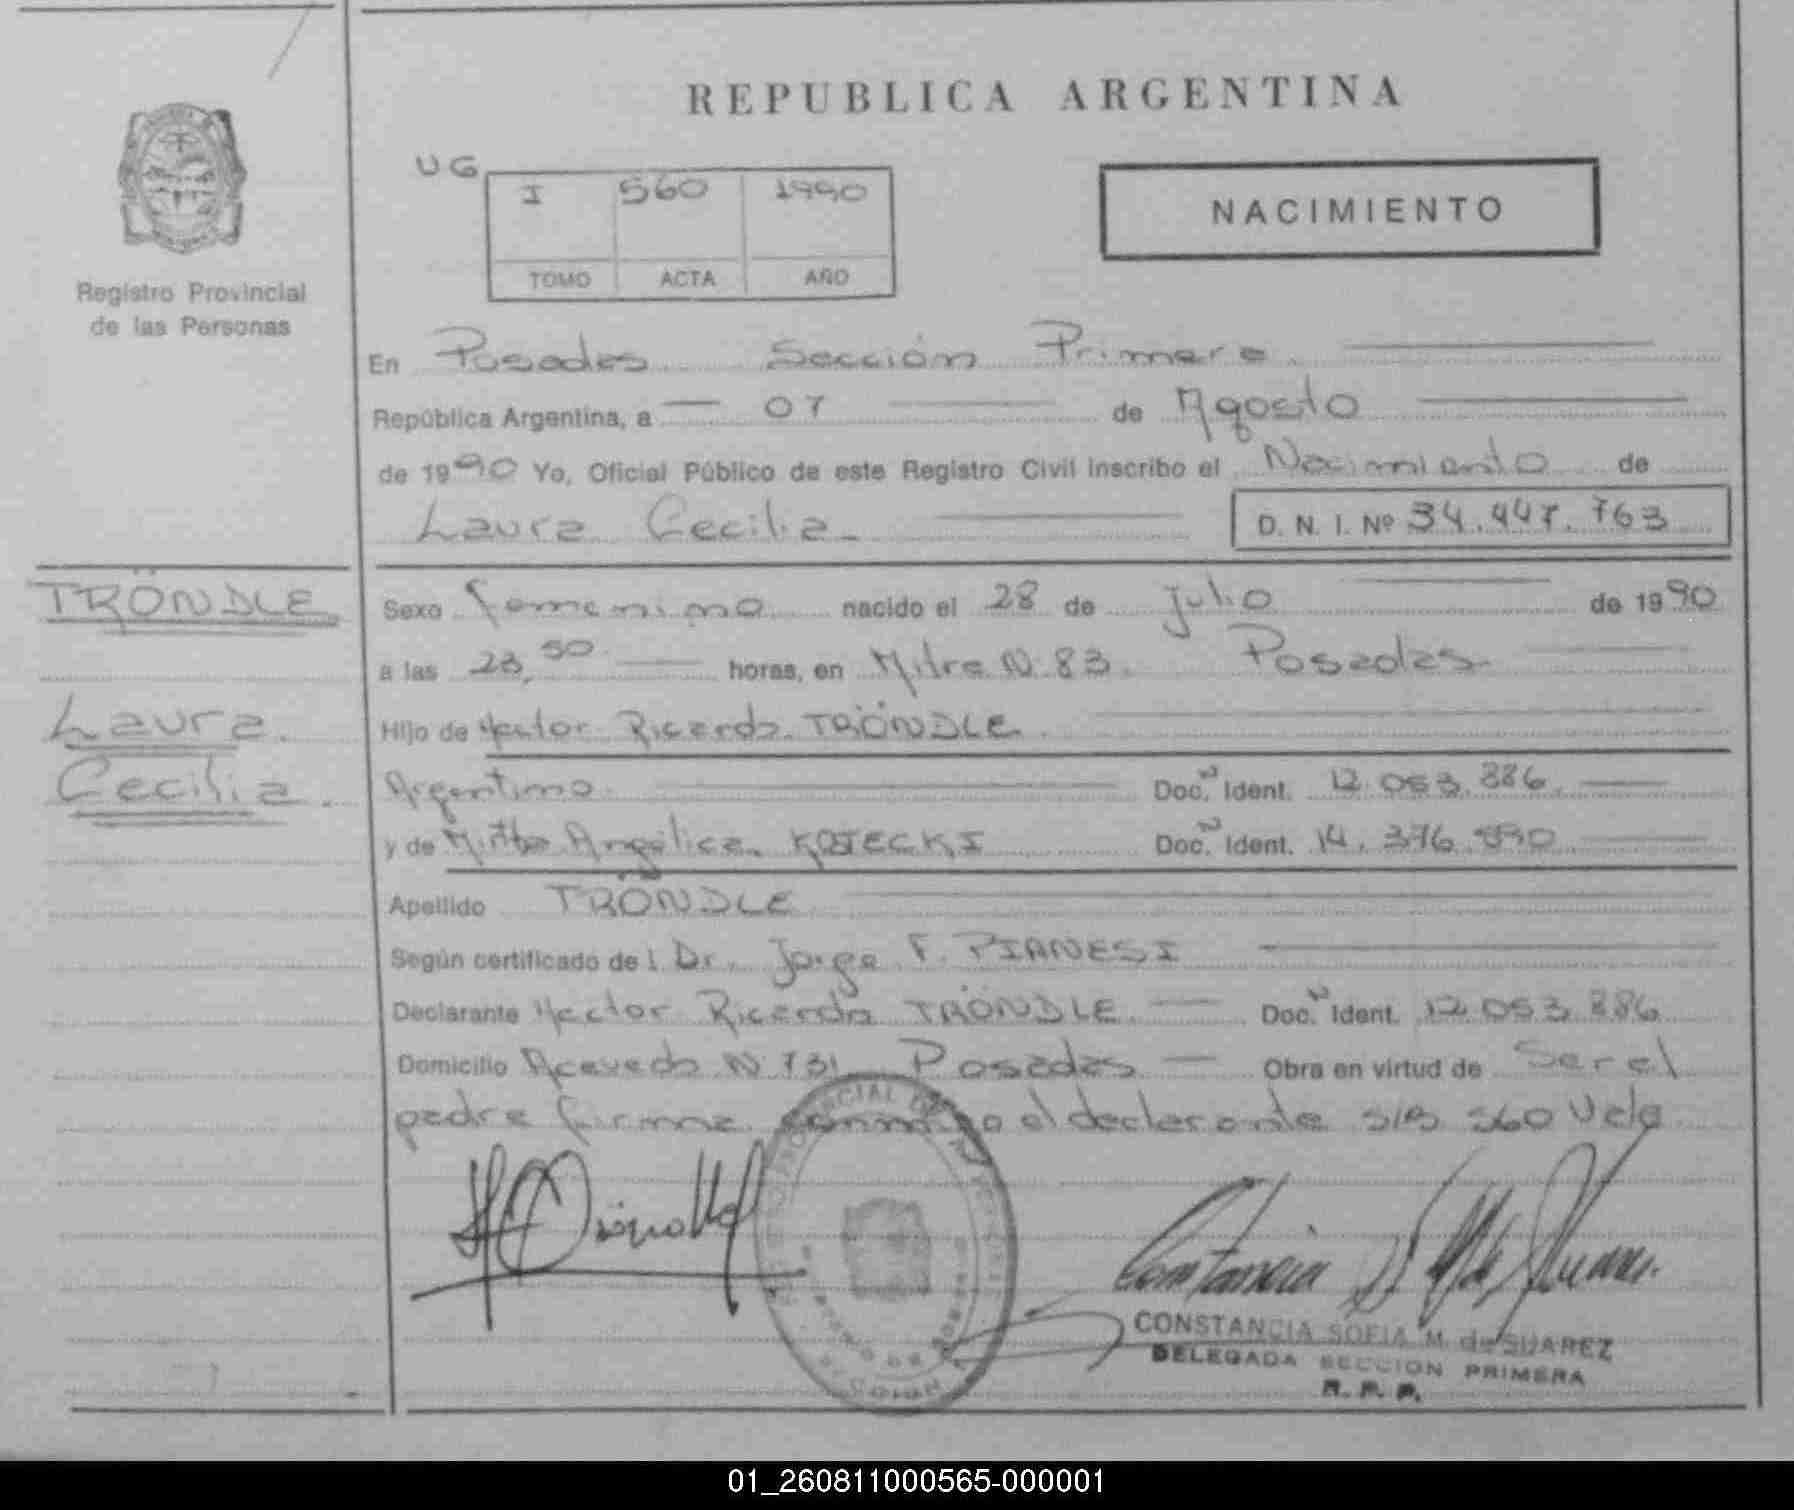 REPUBLICA ARGENTINA
UG
I 560 1990
TOMO ACTA AÑO
NACIMIENTO
Registro Provincial
de las Personas
En Posadas Sección Primera
República Argentina, a 07 de Agosto
de 1990 Yo, Oficial Público de este Registro Civil inscribo el Nacimiento de
Laura Cecilia
D. N. I. Nº 34.447.763
TRÖNDLE
Laura
Cecilia.
Sexo femenino nacido el 28 de julio de 1990
a las 23,50 horas, en Mitre N. 83. Posadas
Hijo de Hector Ricardo TRÖNDLE
Argentino Doc. N Ident. 12.053.886
y de Angélica Doc. N Ident. 14.376.890
Apellido TRÖNDLE
Según certificado de l Dr. Jorge F. PIANESI
Declarante Hector Ricardo TRÖNDLE Doc. N Ident. 12.053.886
Domicilio Acevedo N 731 Posadas Obra en virtud de Ser el
padre firma conmigo el declarante S/B 560 Vale
CONSTANCIA SOFIA M. de SUAREZ
DELEGADA SECCION PRIMERA
R. P. P.
01_260811000565-000001